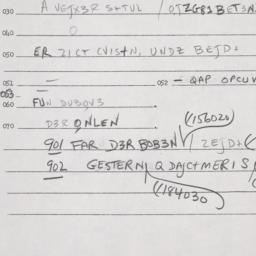 030 A VEJX3R S+TUL / OTZGB3 BET3N
040 O
050 ER ZICT CVIS+N, UNDZ BEJD+
051 — 052 — QAP OPCUV
053
060 FUN DVBQV3
070 D3R QNLEN (/156020)
901 FAR D3R BOB3N / ZEJD+ (
902 GESTERN, Q DAJC+MERIS
(/184030